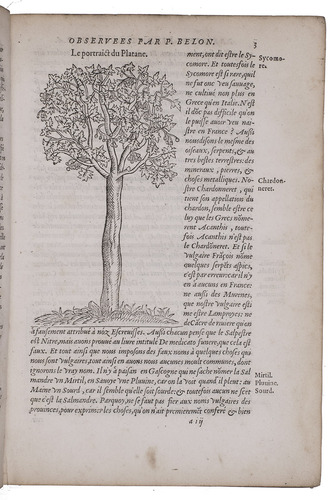 OBSERVEES PAR P. BELON. 3
Le portraict du Platane.
ment, ont dit estre le Sy-
comore. Et toutesfois le
Sycomore est si rare, quil
ne fut onc veu sauuage,
ne cultiué non plus en
Grece qu'en Italie. N'est
il dõc pas difficile qu'on
le puisse auoir veu nai-
stre en France? Aussi
nous disons le mesme des
oiseaux, serpents, & au
tres bestes terrestres: des
mineraux, pierres, &
choses metalliques. No-
stre Chardonneret, qui
tient son appellation du
chardon, semble estre ce
luy que les Grecs nõme-
rent Acanthis, toutes-
fois Acanthis n'est pas
le Chardõneret. Et si le
vulgaire Frãçois nõme
quelques serpẽts aspics,
c'est par erreur: car il n'y
en à aucuns en France:
ne aussi des Murenes,
que nostre vulgaire esti
me estre Lamproyes: ne
de Cãcre de riuiere qu'on
à faulsement attribué à noz Escreuisses. Aussi chacun pense que le Salpestre
est Nitre, mais auons prouué au liure intitulé De medicato funere, que cela est
faux. Et tout ainsi que nous imposons des faux noms à quelques choses qui
nous sont vulgaires, tout ainsi en auons nous aucunes moult communes, dont
ignorons le vray nom. Il n'y à paisan en Gascongne qui ne sache nõmer la Sal
mandre vn Mirtil, en Sauoye vne Pluuine, car on la voit quand il pleut: au
Maine vn Sourd, car il semble qu'elle soit sourde: & toutesfois aucun ne sçet
que c'est la Salmandre. Parquoy, ne se faut pas fier aux noms vulgaires des
prouinces, pour exprimer les choses, qu'on n'ait premieremẽt conferé & bien
a iij
Sycomo-
re.
Chardon-
neret.
Mirtil.
Pluuine.
Sourd.